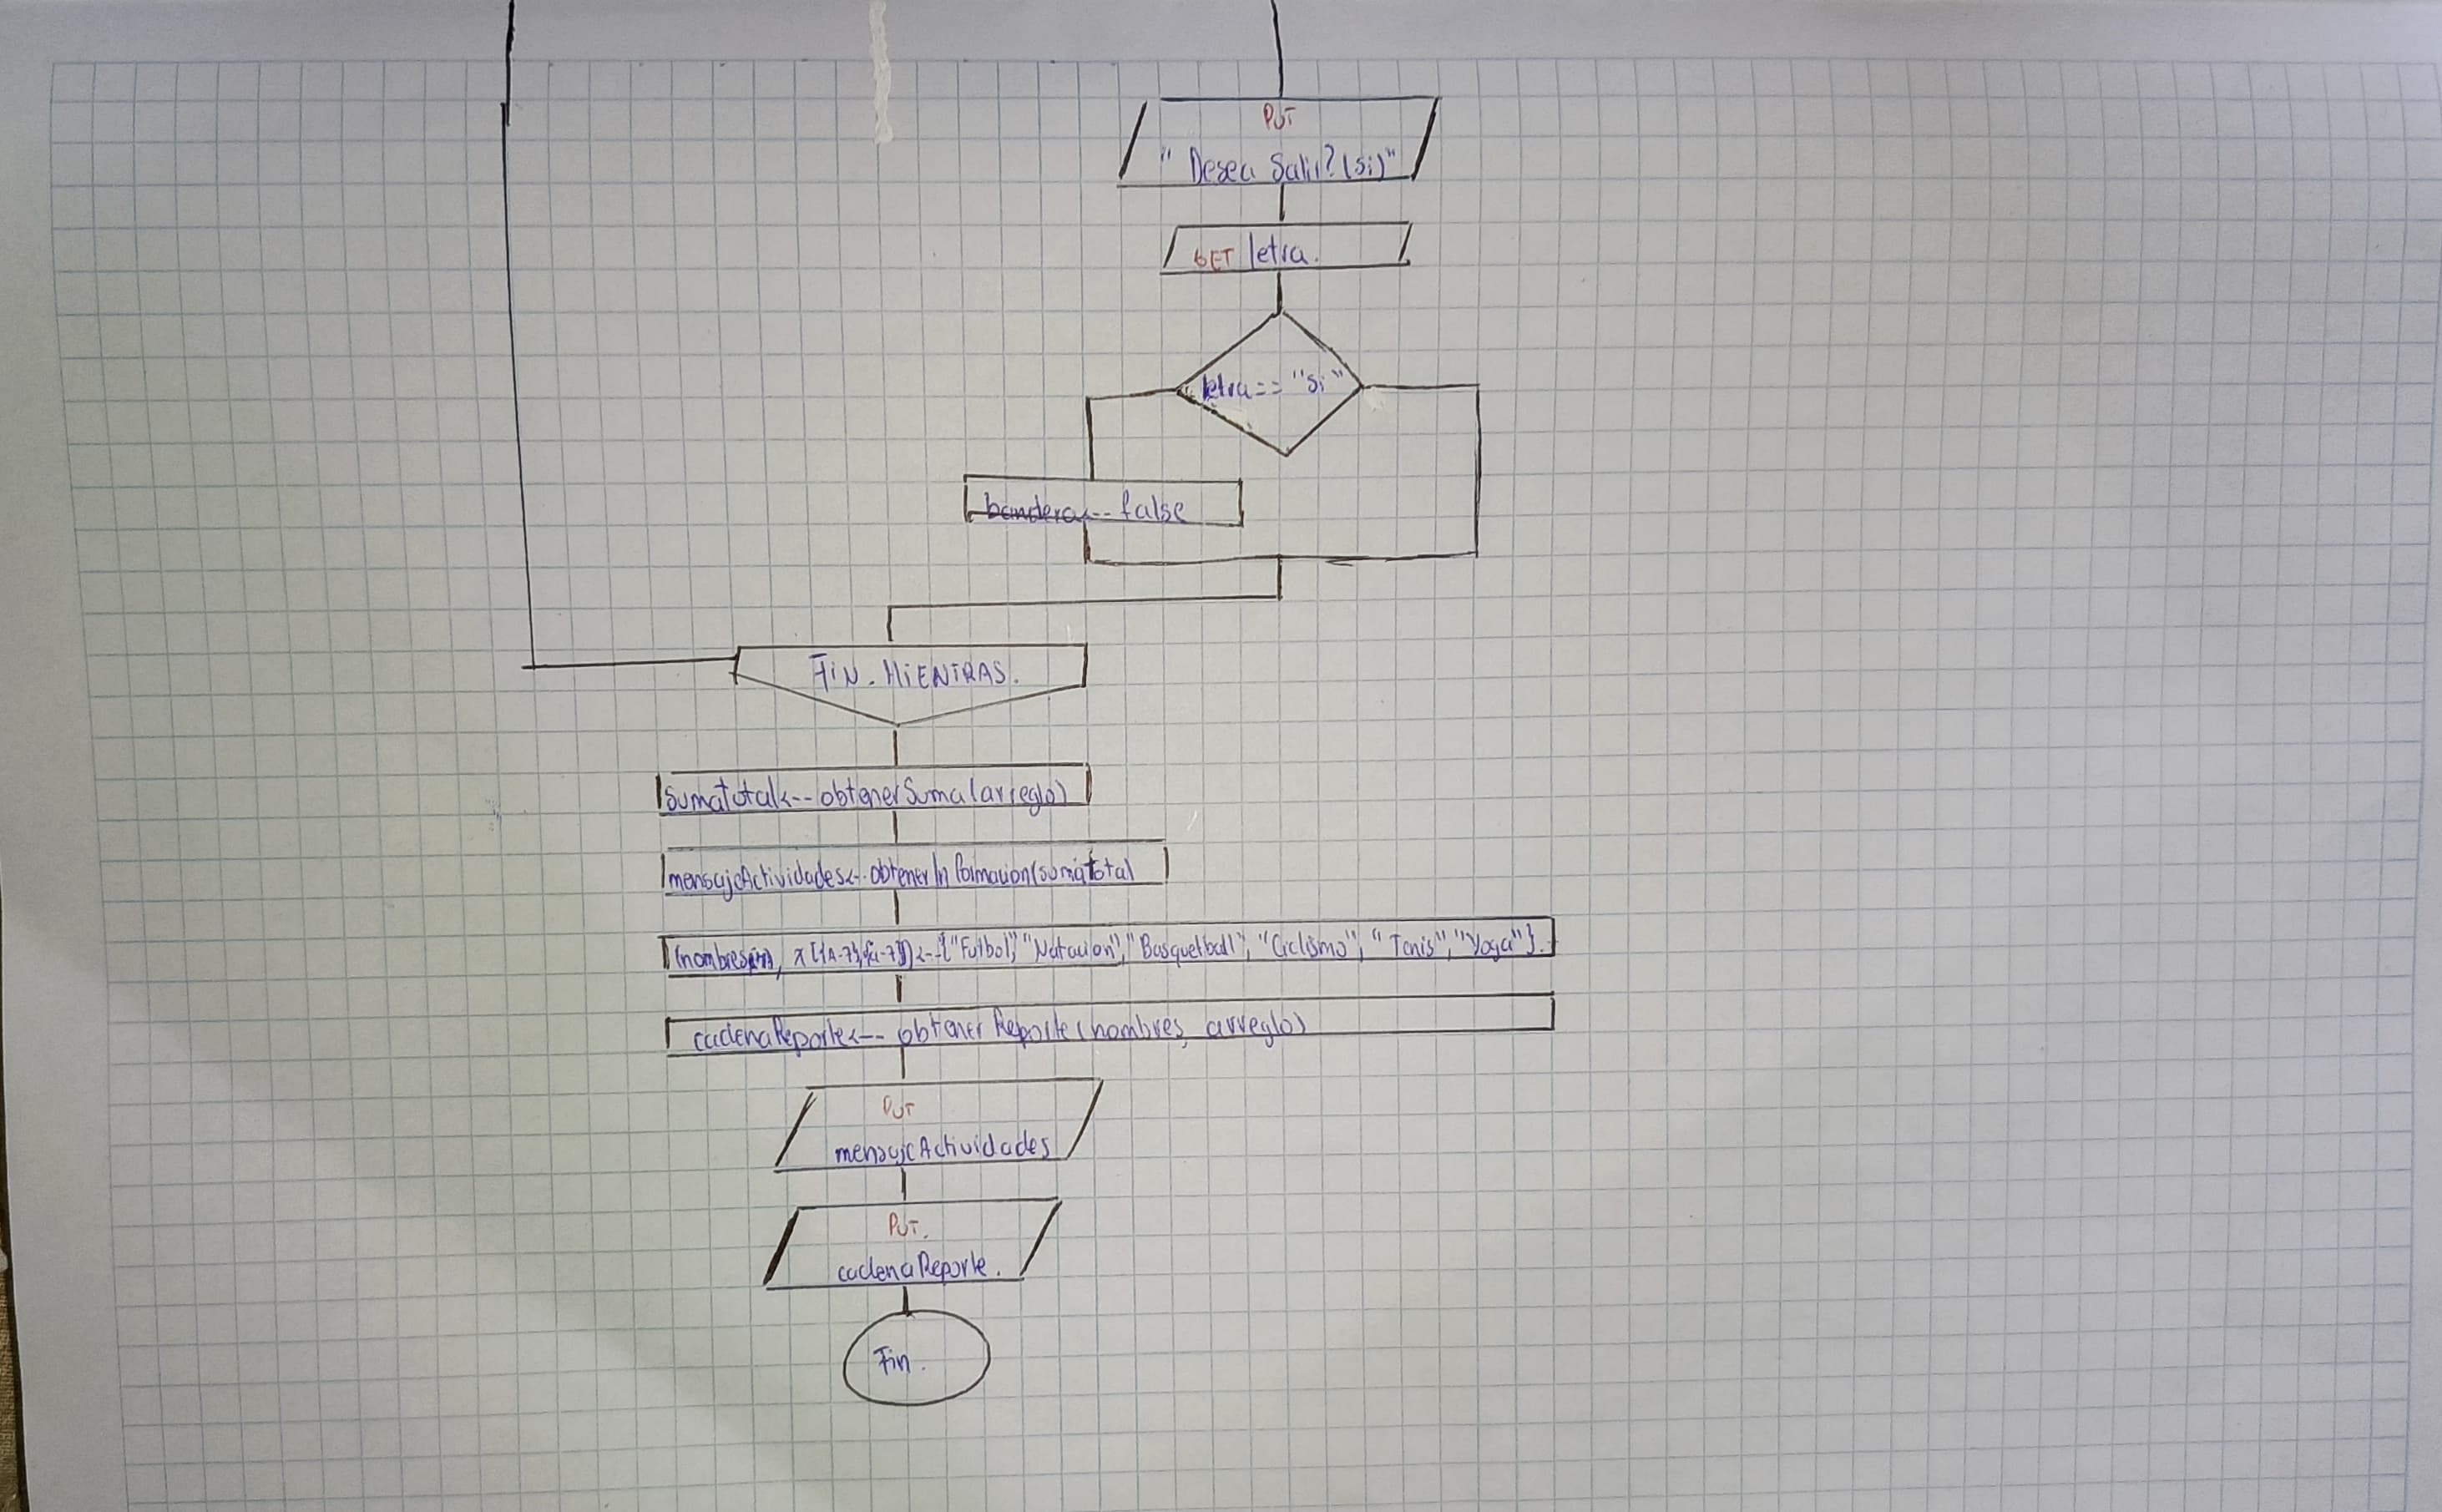 PUT
" Desea Salir? (si)"
GET letra.
letra == "Si"
bandera<-- false
FiN - MiENTRAS.
sumaTotal<-- obtenerSuma(arreglo)
mensajeActividades<-- obtenerInformacion(sumaTotal
<-- {"Futbol", "Natacion", "Basquetball", "Ciclismo", "Tenis", "Yoga"}.
cadenaReporte<--- obtenerReporte(nombres, arreglo)
PUT
mensajeActividades
PUT.
cadenaReporte.
Fin.